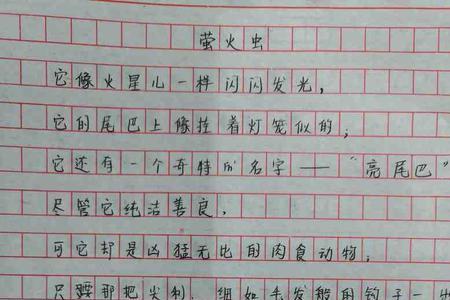 萤火虫
它像火星儿一样闪闪发光，
它的尾巴上像拴着灯笼似的；
它还有一个奇特的名字——“亮尾巴”
尽管它纯洁善良，
可它却是凶猛无比的肉食动物；
只要那把尖利、细如毛发般的钩子一出